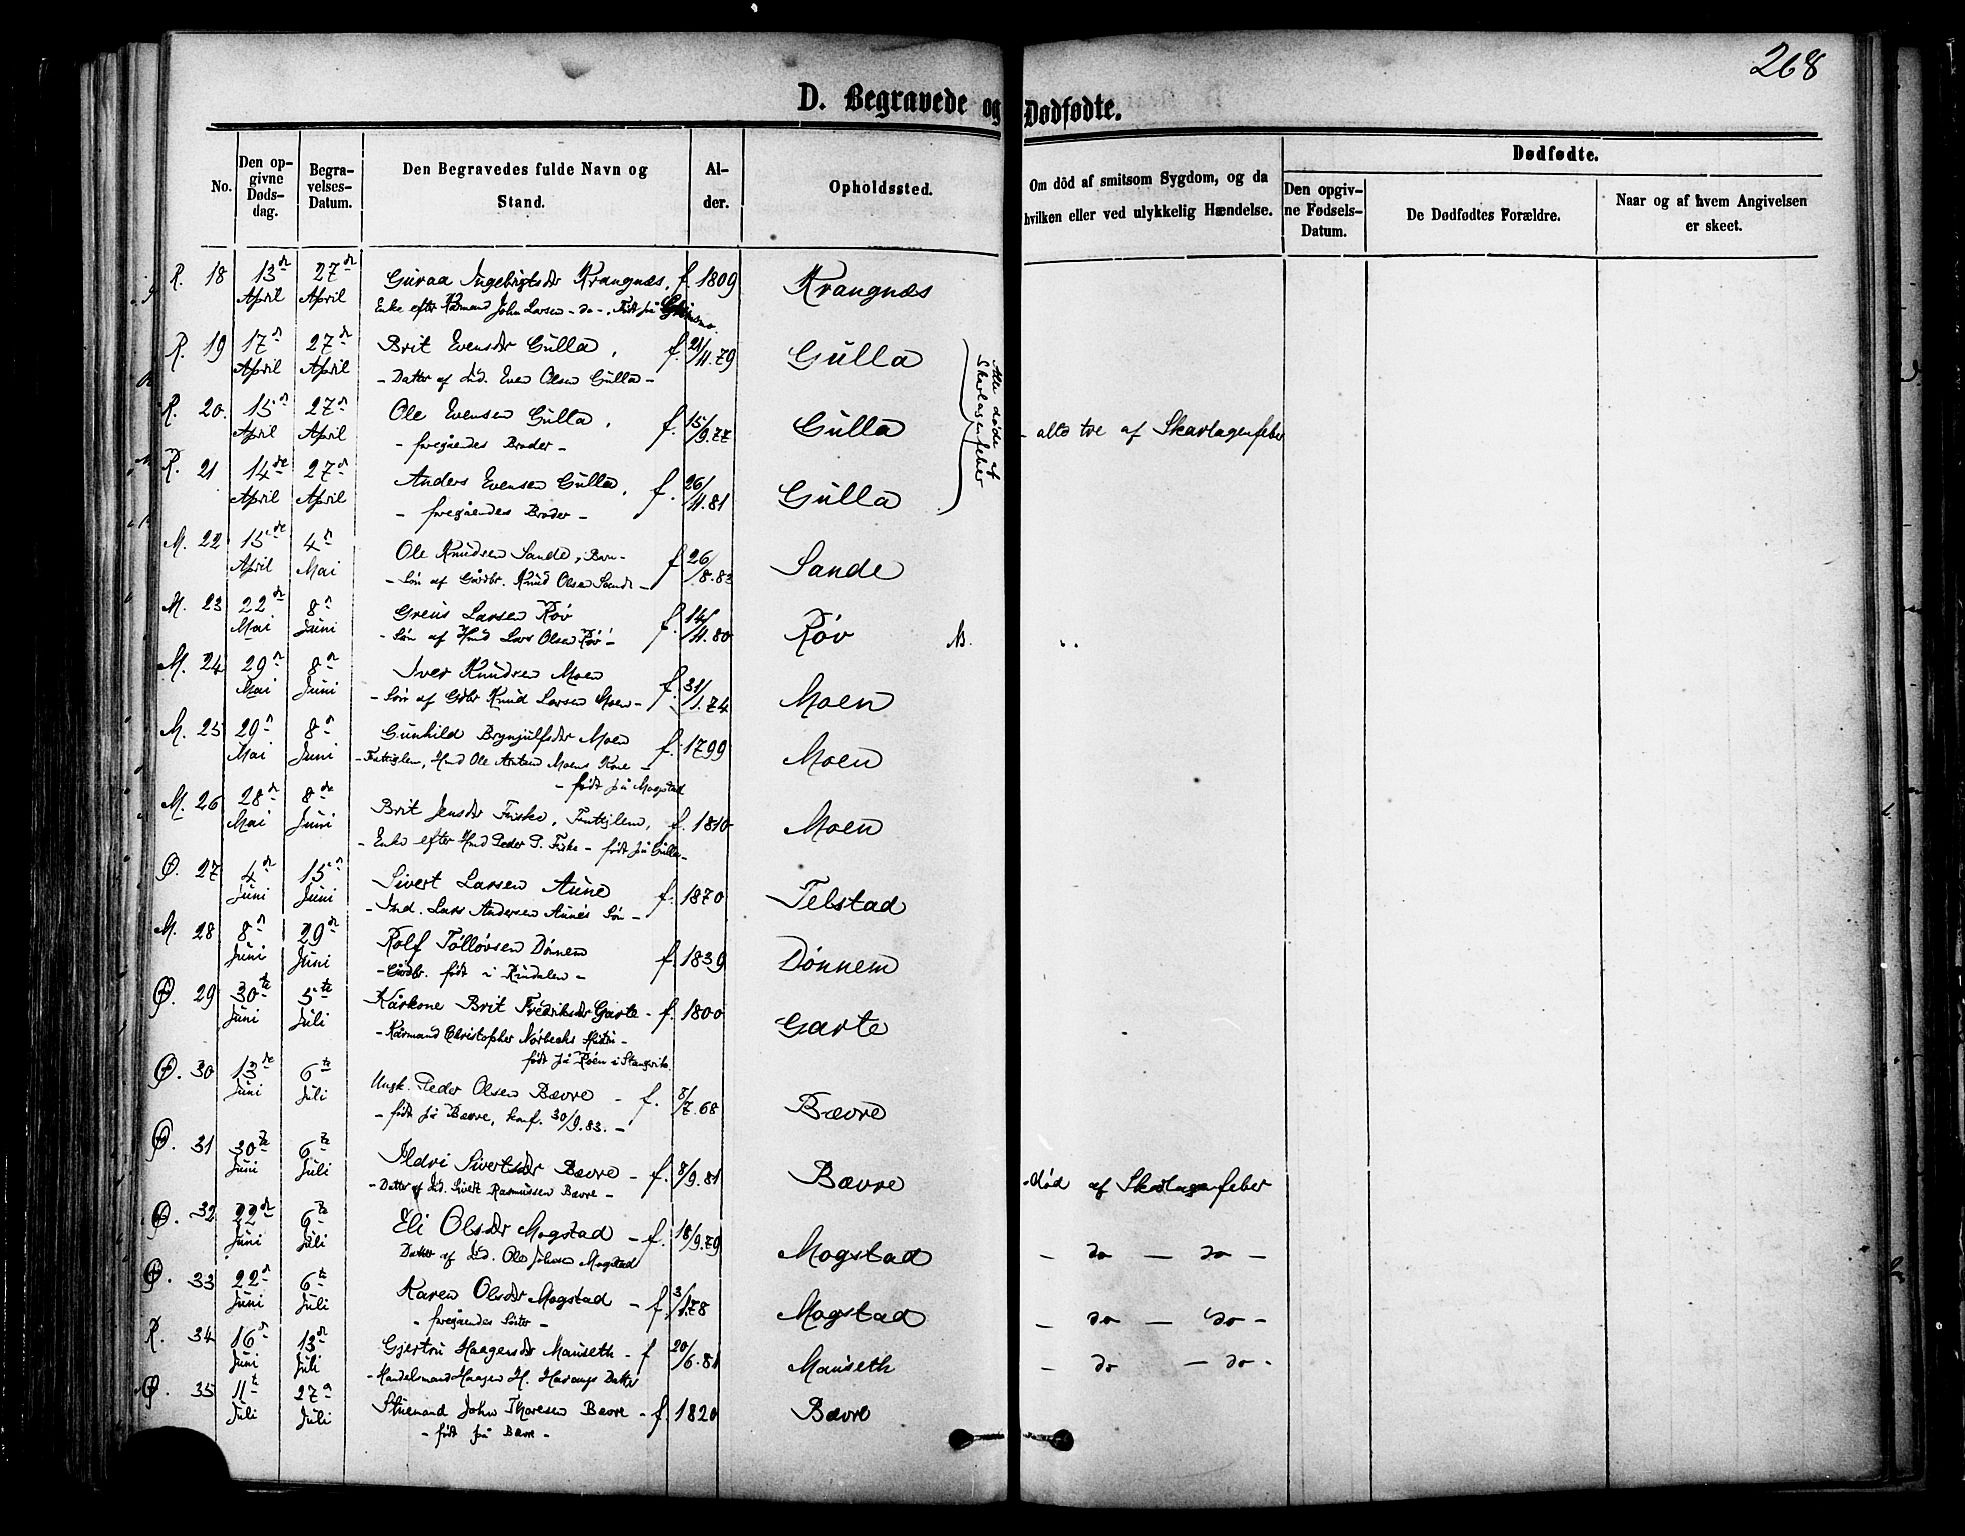 268
D. Begravede og Dødfødte.
No.
Den opgivne Dødsdag.
Begravelses-Datum.
Den Begravedes fulde Navn og Stand.
Alder.
Opholdssted.
Om död af smitsom Sygdom, og da hvilken eller ved ulykkelig Hændelse.
Dødfødte.
Den opgivne Fødsels-Datum.
De Dødfødtes Forældre.
Naar og af hvem Angivelsen er skeet.
R. 18 13de April 27de April Guraa Ingebrigtsdr Krangnæs, f. 1809 Krangnæs
Enke efter Kårmand John Larsen - do -, Født på
R. 19 17de April 27de April Brit Evensdr Gulla, f. 21/11.79 Gulla
- Datter af Lid. Even Olsen Gulla -
Alle døde af Skarlagensfeber
R. 20. 15de April 27de April Ole Evensen Gulla, f. 15/9.77 Gulla - alle tre af Skarlagenfeber
- foregåendes Broder -
R. 21 14de April 27de April Anders Evensen Gulla, f. 26/11.81 Gulla
- foregåendes Broder -
M. 22 15de April 4de Mai Ole Knudsen Sande, Barn - f. 26/8.83 Sande
- Søn af Gårdbr. Knud Olsen Sande -
M. 23 22de Mai 8de Juni Greus Larsen Røv f. 14/11.80 Røv
- Søn af Hmd Lars Olsen Røv -
M. 24 29de Mai 8de Juni Iver Knudsen Moen f. 31/1.74 Moen
- Søn af Gdbr Knud Larsen Moen -
M. 25 29de Mai 8de Juni Gunhild Brynjulfsdr Moen f. 1799 Moen
- Fattiglem, Hmd Ole Moens Kone -
- født på Mogstad
M. 26 28de Mai 8de Juni Brit Jensdr Fiske, Fattiglem, f. 1810 Moen
- Enke efter Hmd Peder P. Fiske - født på Gulla -
Ø. 27 4de Juni 15de Juni Sivert Larsen Aune f. 1870 Telstad
- Ind. Lars Andersen Aunes Søn -
M. 28 8de Juni 29de Juni Rolf Tølløvsen Dønnem f. 1839 Dønnem
- Gårdbr. født i Rindalen -
Ø. 29 30te Juni 5te Juli Kårkone Brit Fredriksdr Garte - f. 1800 Garte
- Kårmand Christopher Nørbechs Hustru -
født på Røen i Stangvik.
Ø. 30 13de Juni 6te Juli Ungk. Peder Olsen Bævre - f. 8/7.68 Bævre
- født på Bævre, konf. 30/9.83. -
Ø. 31 30te Juni 6te Juli Ildri Sivertsdr Bævre - f. 8/9.81 Bævre - død af Skarlagenfeber
- Datter af Lid. Sivert Rasmussen Bævre -
Ø. 32 22de Juni 6te Juli Eli Olsdr Mogstad - f. 18/9.79 Mogstad - do - do -
Datter af Lid. Ole Johnsen Mogstad
Ø. 33 22de Juni 6te Juli Karen Olsdr Mogstad - f. 3/1.78 Mogstad - do - do -
- foregåendes Søster -
R. 34 16de Juni 13de Juli Gjertru Haagensdr Mauseth - f 20/6.81 Mauseth - do - do -
- Handelsmand Haagen H. Datter
Ø. 35 11te Juli 27de Juli Stuemand John Thoresen Bævre - f. 1820 Bævre
- født på Bævre -